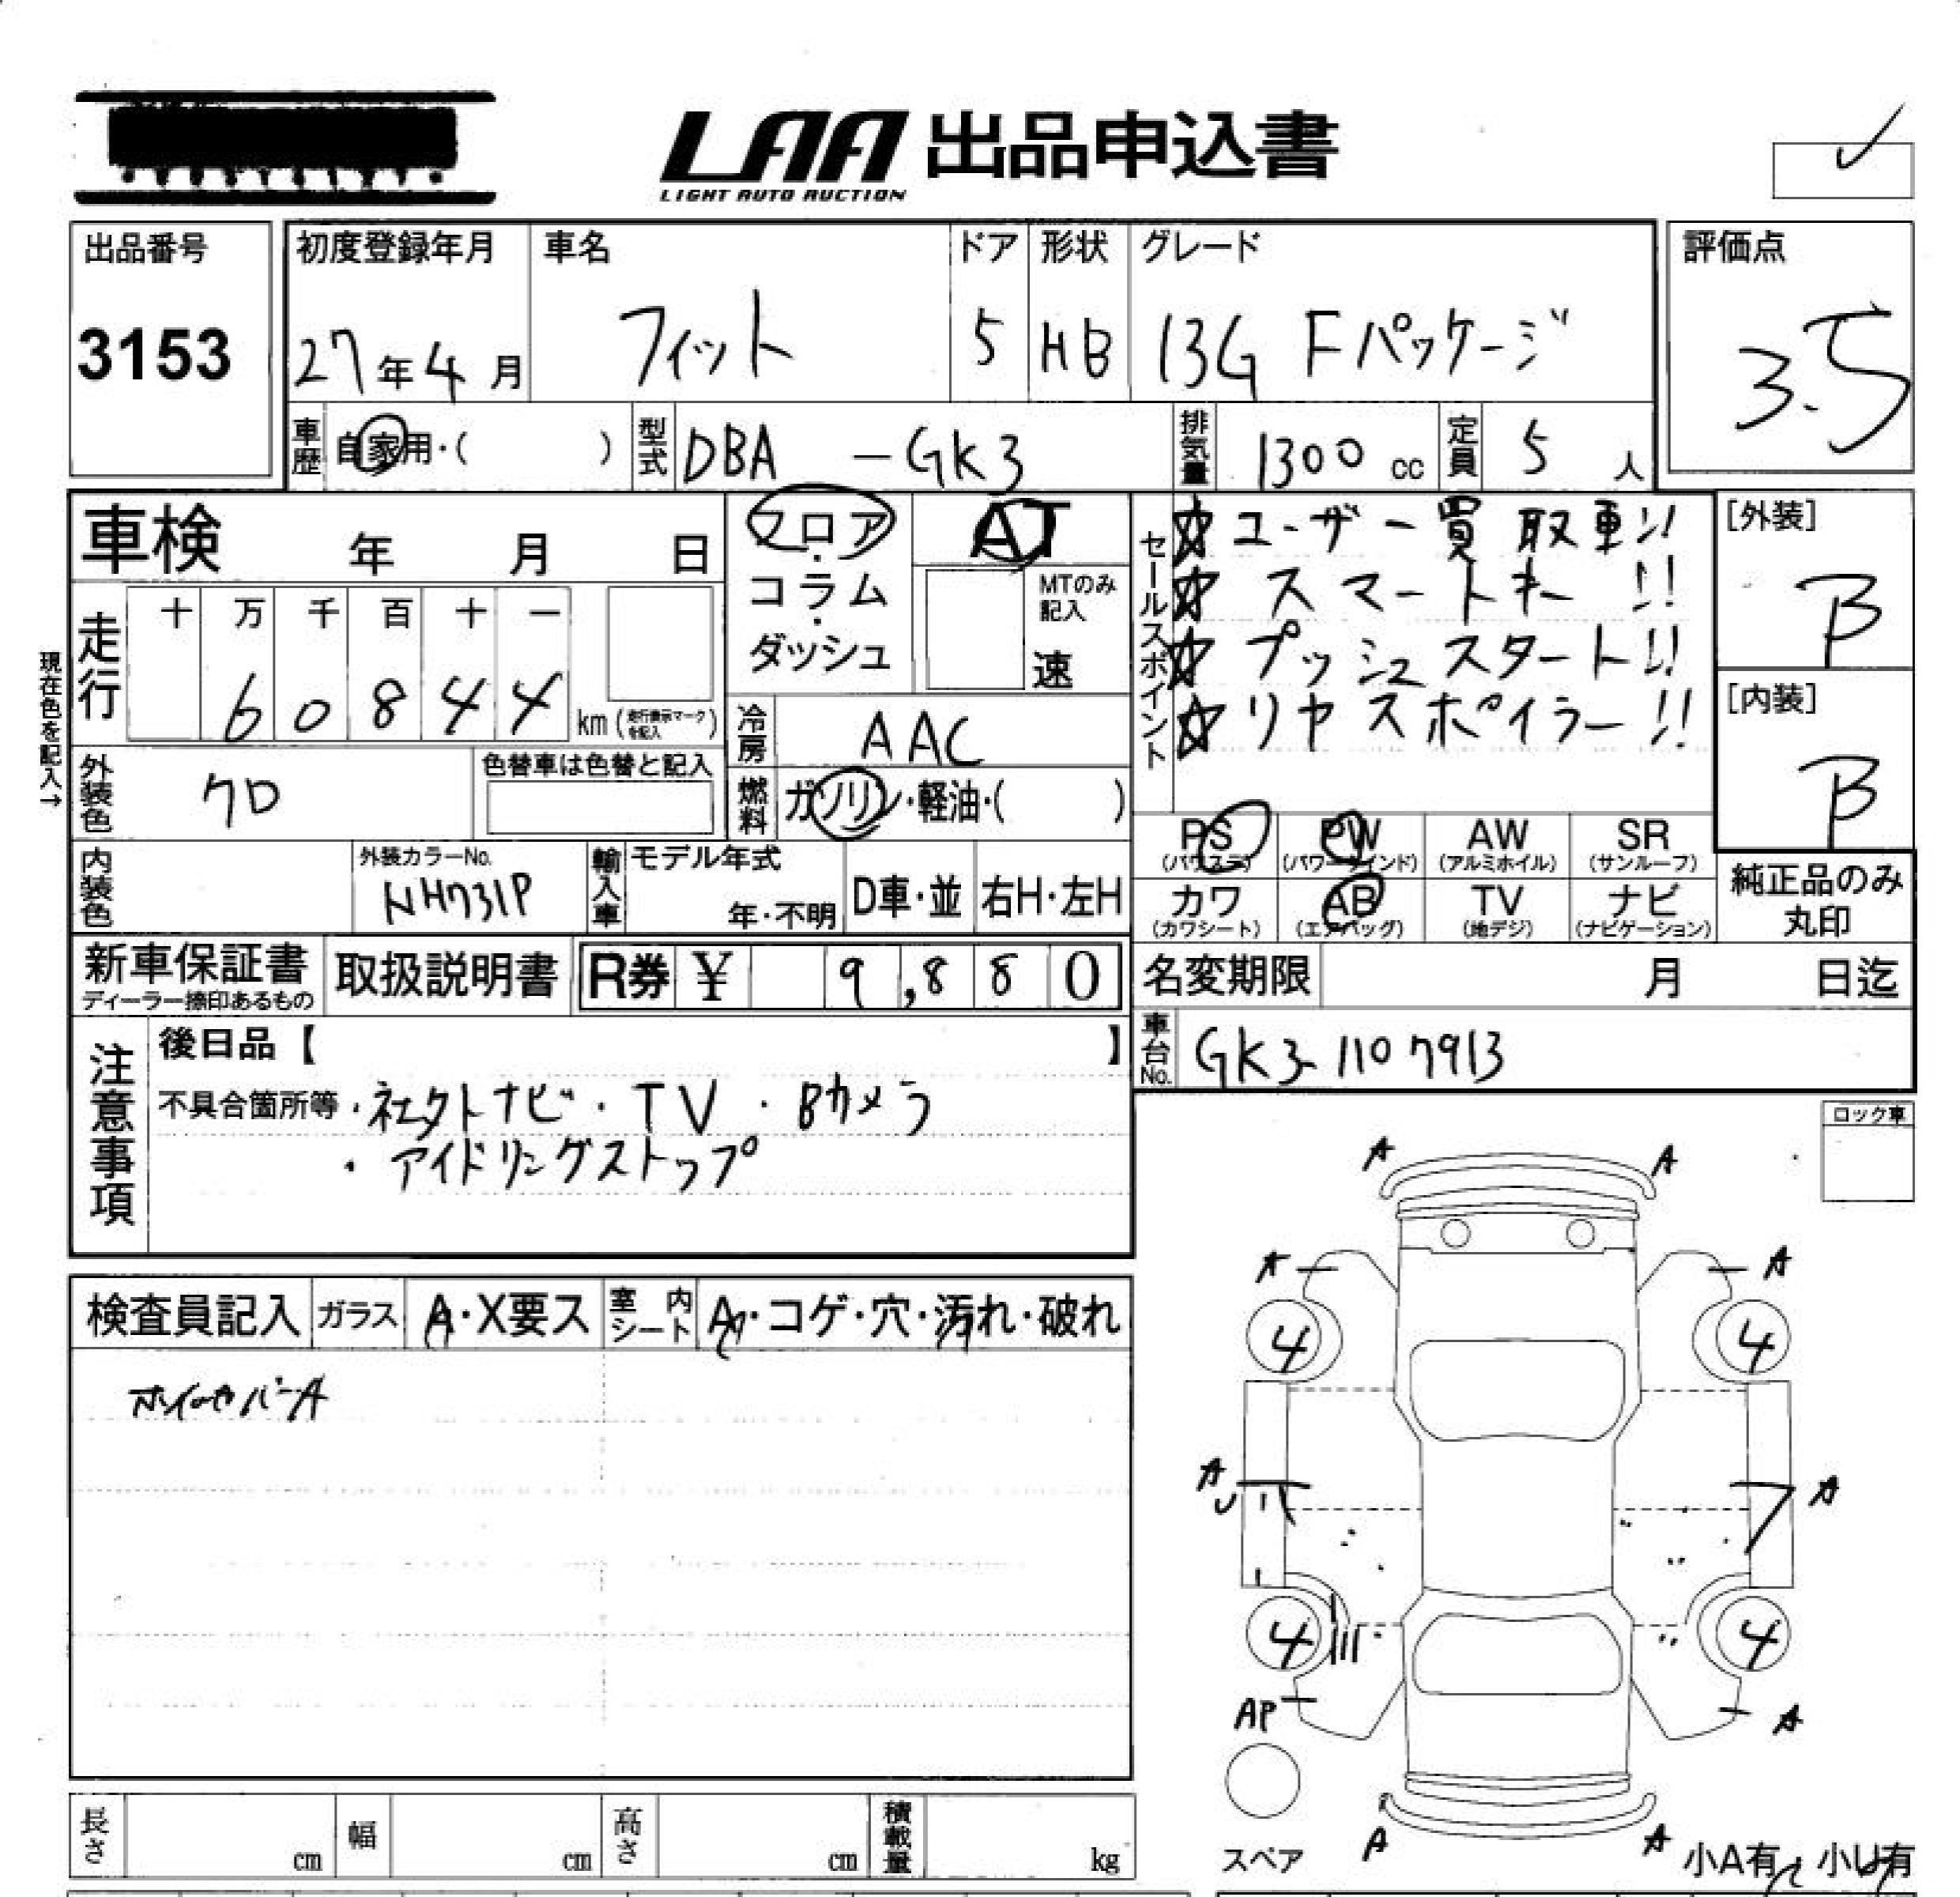 LAA 出品申込書
LIGHT AUTO AUCTION
出品番号
3153
初度登録年月
27年4月
車名
フィット
ドア
5
形状
HB
グレード
13G Fパッケージ
評価点
3.5
車歴
自家用・( )
型式
DBA -GK3
排気量
1300 cc
定員
5 人
車検 年 月 日
現在色を記入→
走行
十 万 千 百 十 一
6 0 8 4 4
km (走行表示マークを記入)
フロア・コラム・ダッシュ
AT
MTのみ記入
速
冷房
AAC
燃料
ガソリン・軽油・( )
セールスポイント
☆ユーザー買取車!!
☆スマートキー!!
☆プッシュスタート!!
☆リヤスポイラー!!
[外装]
B
[内装]
B
外装色
クロ
色替車は色替と記入
内装色
外装カラーNo.
NH731P
輸入車
モデル年式
年・不明
D車・並
右H・左H
PS
(パワステ)
PW
(パワーウインド)
AW
(アルミホイル)
SR
(サンルーフ)
カワ
(カワシート)
AB
(エアバッグ)
TV
(地デジ)
ナビ
(ナビゲーション)
純正品のみ
丸印
新車保証書
ディーラー捺印あるもの
取扱説明書
R券 ¥ 9,880
名変期限 月 日迄
車台No.
GK3-1107913
注意事項
後日品【 】
不具合箇所等・社外ナビ・TV・Bカメラ
・アイドリングストップ
ロック車
検査員記入
ガラス
A・X要ス
室内シート
A・コゲ・穴・汚れ・破れ
A
A
A
A
4
4
A
U
A
4
4
AP
A
スペア
A
A
小A有 小U有
長さ cm
幅 cm
高さ cm
積載量 kg